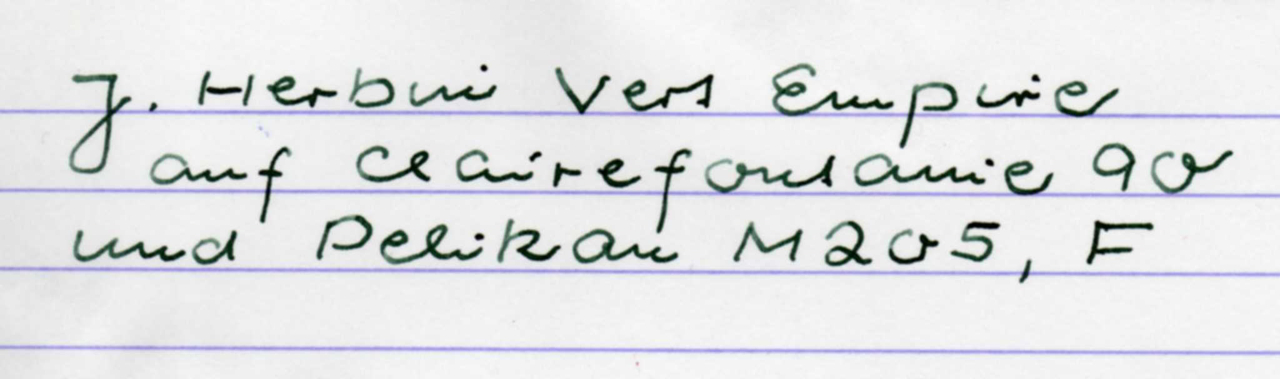 J. Herbin Vert Empire
auf Clairefontaine 90
und Pelikan M205, F